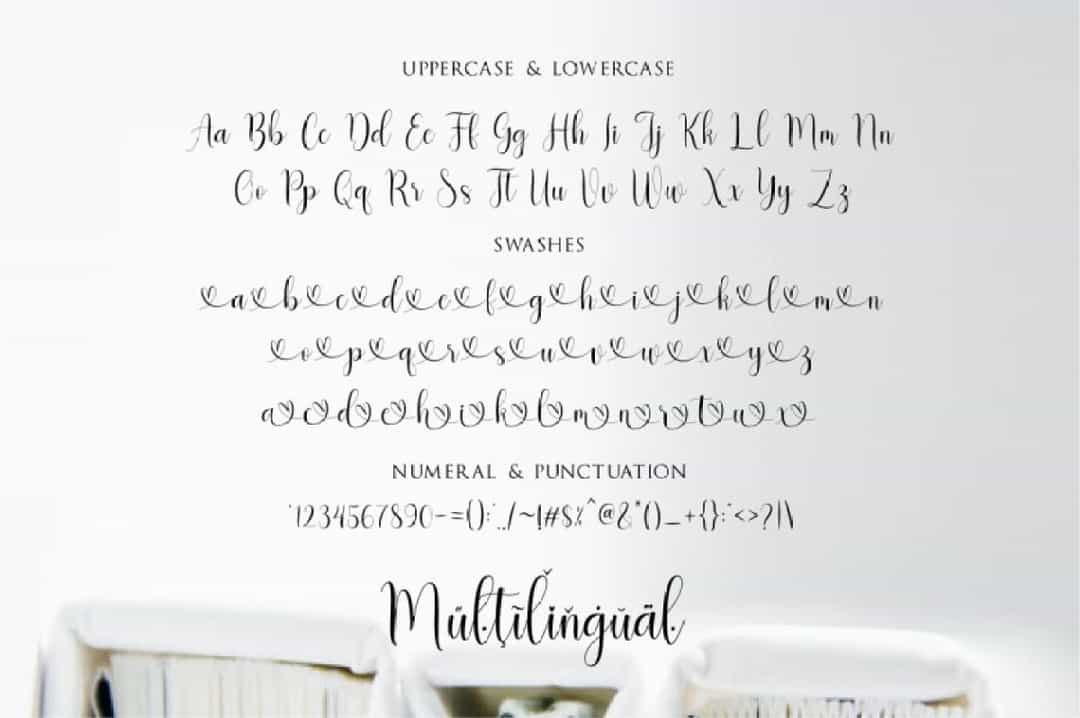 UPPERCASE & LOWERCASE
Aa Bb Cc Dd Ee Ff Gg Hh Ii Jj Kk Ll Mm Nn
Oo Pp Qq Rr Ss Tt Uu Vv Ww Xx Yy Zz
SWASHES
a b c d e f g h i j k l m n
o p q r s u v w x y z
a c d e h i k l m n r t u x
NUMERAL & PUNCTUATION
`1234567890-=();'.,/~!#$%^@&*()_+{}:"<>?|\
Mūľţĩľiňġŭäŀ